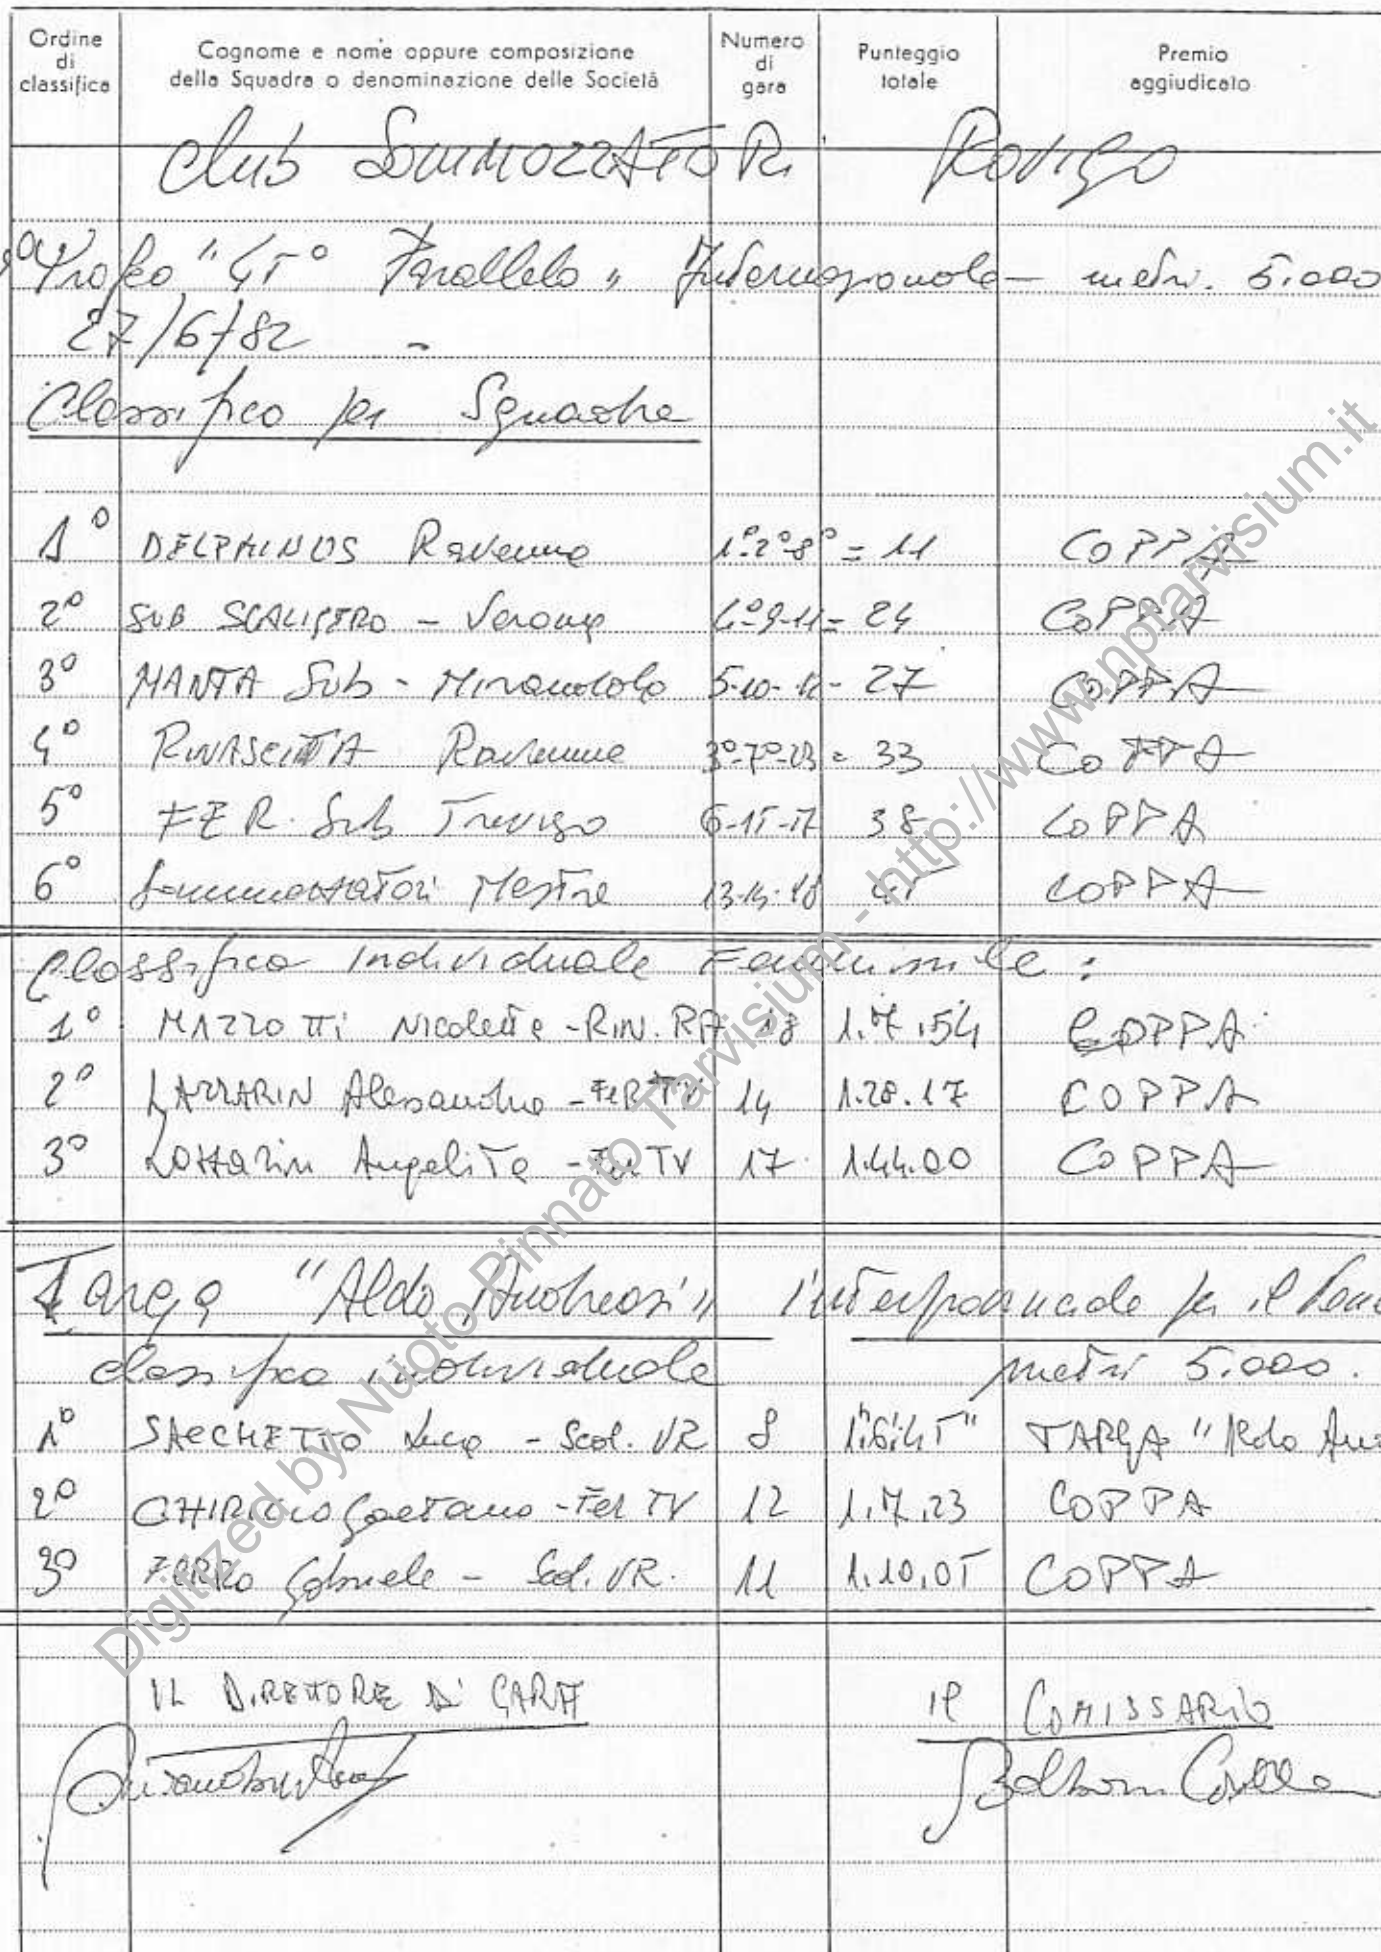 Ordine di classifica | Cognome e nome oppure composizione della Squadra o denominazione delle Società | Numero di gara | Punteggio totale | Premio aggiudicato
Club SOMMOZZATORI Rovigo
Trofeo "45° Parallelo" Internazionale - metri. 5.000
27/6/82 -
Classifica per Squadre
1° DELPHINUS Ravenna 1°-2°-8° = 11 COPPA
2° SUB SCALIGERO - Verona 4°-9-11 = 24 COPPA
3° MANTA Sub - Mirandola 5-10-12 - 27 COPPA
4° RINASCITA Ravenna 3°-7°-23 = 33 COPPA
5° FER. Sub Treviso 6-15-17 38 COPPA
6° Sommozzatori Mestre 13-14-18 45 COPPA
Classifica individuale Femminile :
1° MAZZOTTI Nicoletta - RIN. RA 18 1.7.54 COPPA
2° LAZZARIN Alessandra - FER TV 14 1.28.17 COPPA
3° Lazzarin Angelita - Fer TV 17 1.44.00 COPPA
Targa "Aldo Andreosi" per il
classifica individuale metri 5.000.
1° SACCHETTO Luca - Scal. VR 8 1.6.45 TARGA "Aldo
2° CHIRICO Gaetano - Fer TV 12 1.7.23 COPPA
3° FERRO Gabriele - Scal. VR. 11 1.10.05 COPPA
IL DIRETTORE DI GARA
Il COMISSARIO
Digitized by Nuoto Pinnato Tarvisium - http://www.nptarvisium.it